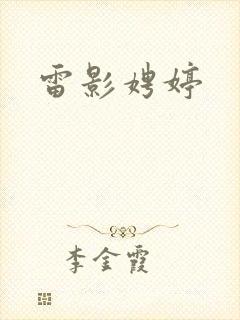 雷影娉婷
李金霞